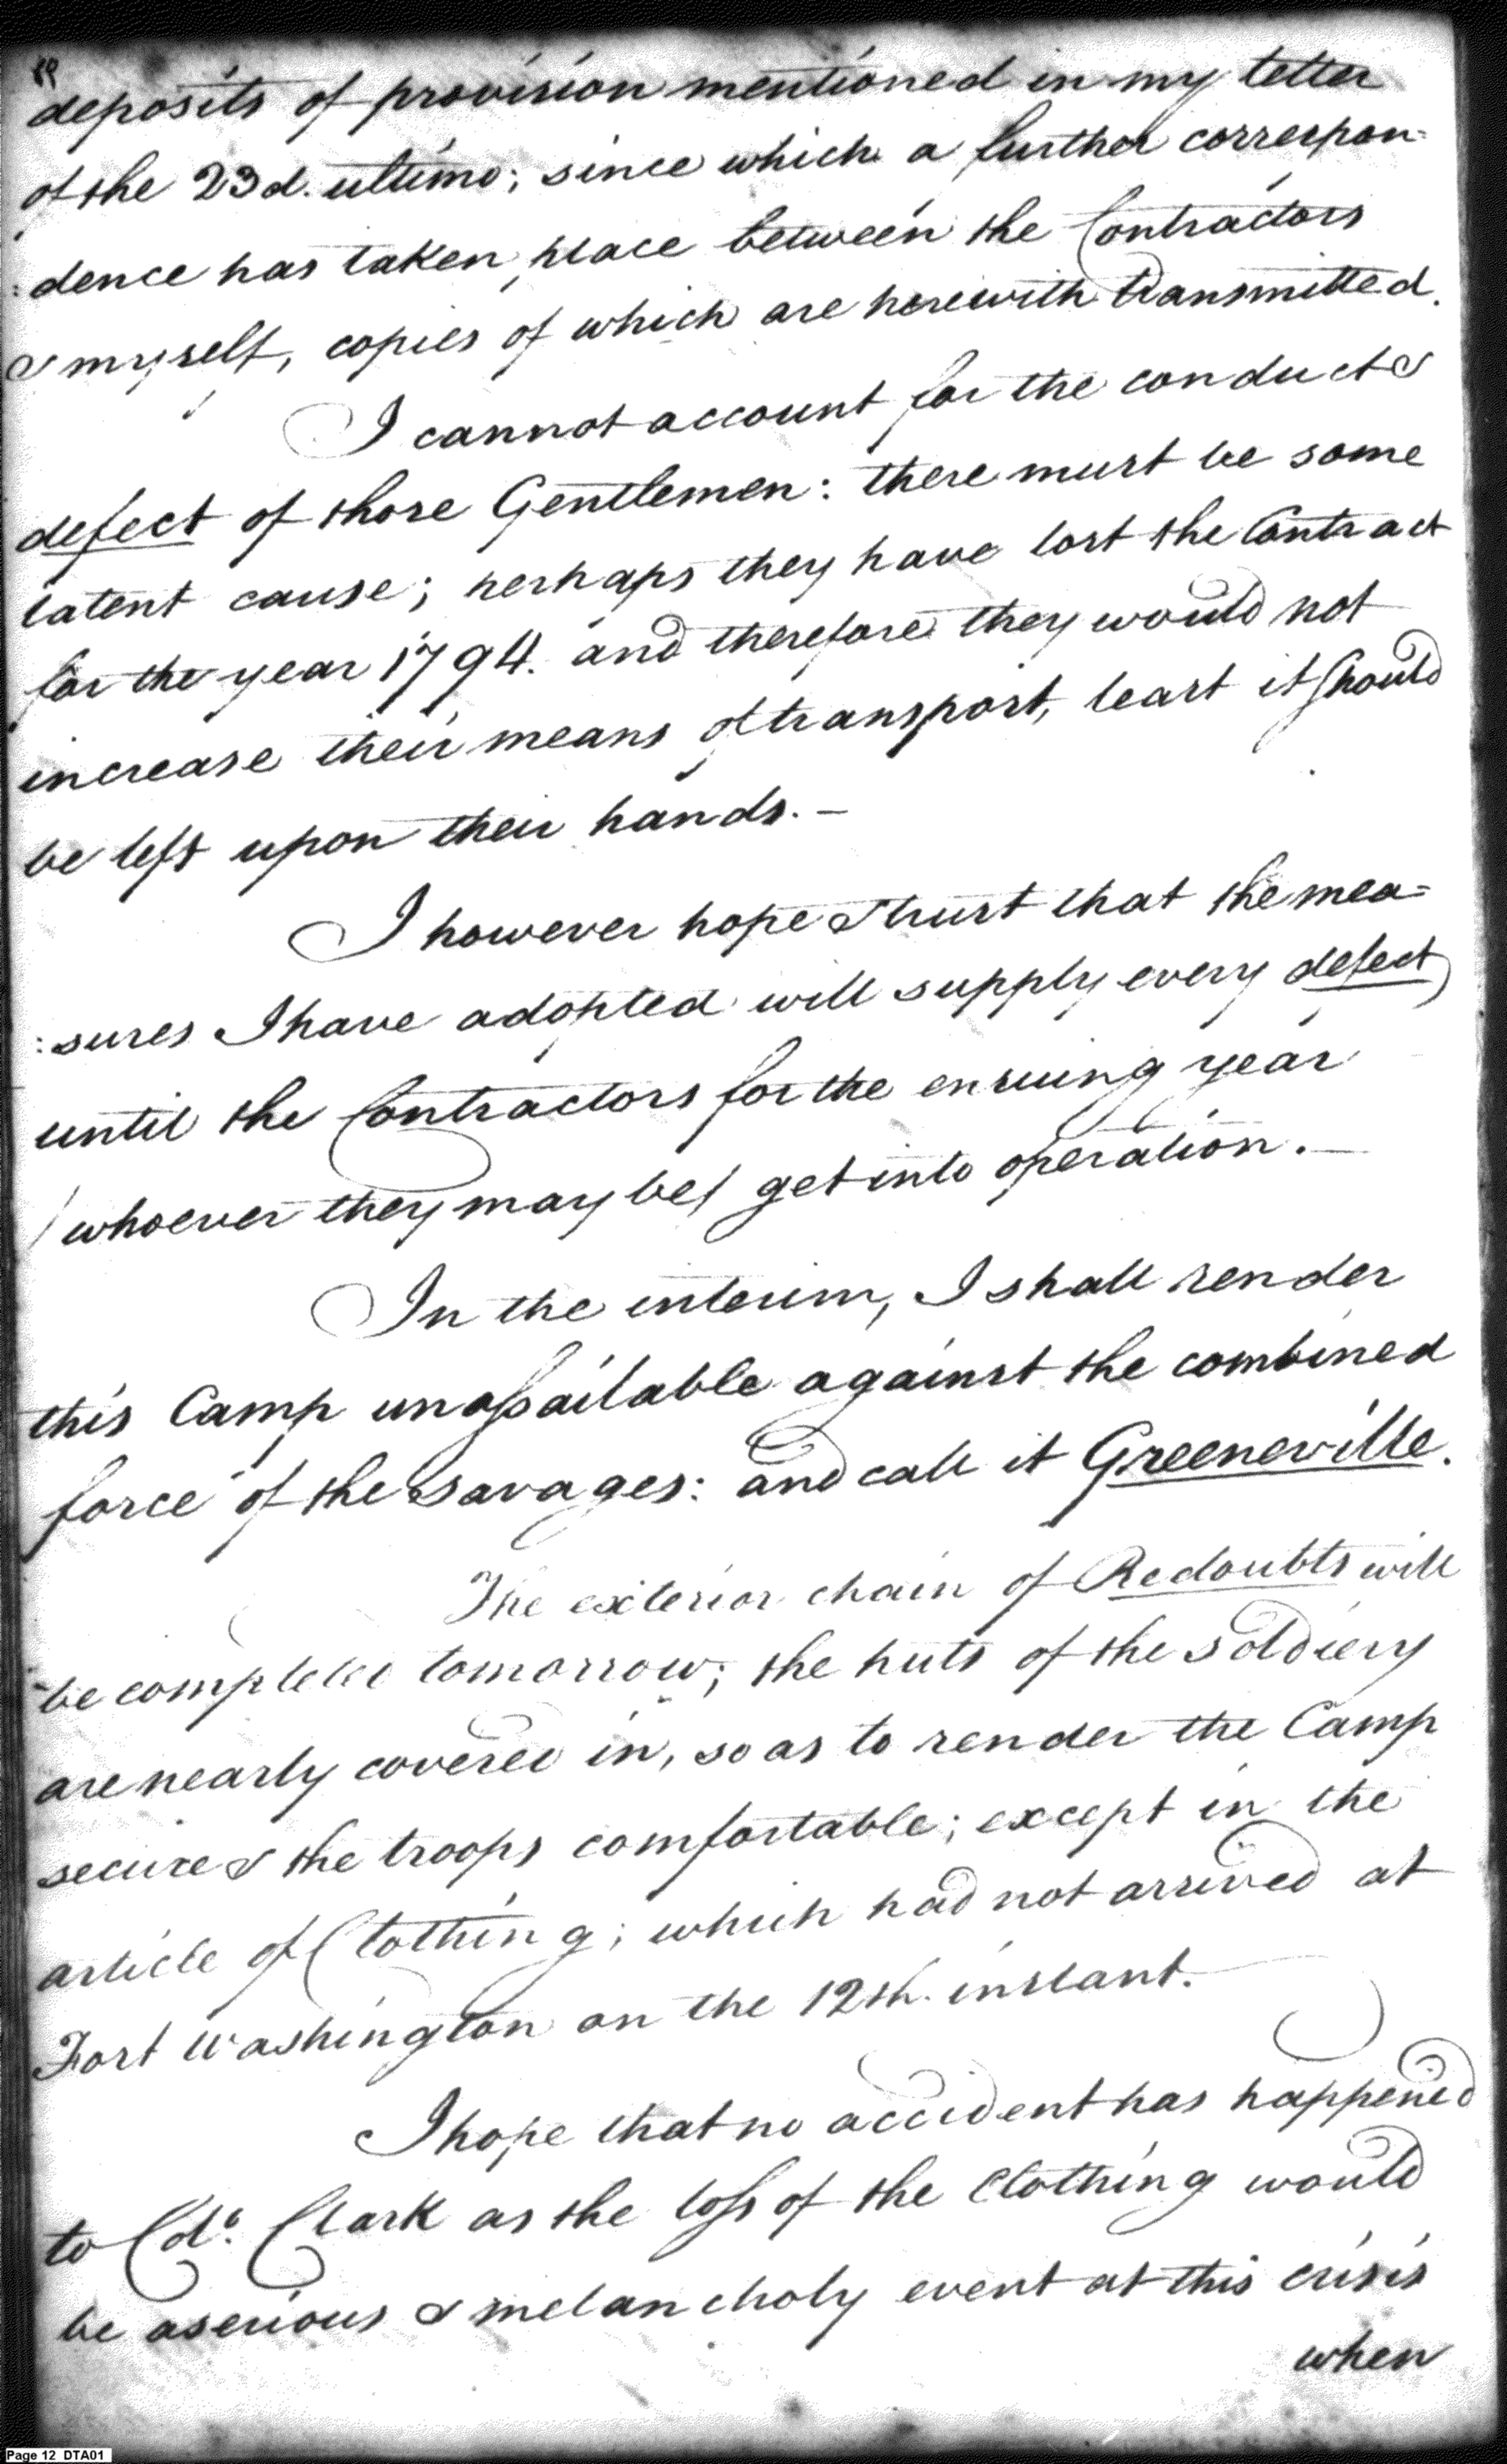 89
deposits of provision mentioned in my letter
of the 23d. ultimo; since which a further correspon=
:dence has taken place between the Contractors
& myself, copies of which are herewith transmitted.
I cannot account for the conduct &
defect of those Gentlemen: there must be some
latent cause; perhaps they have lost the Contract
for the year 1794. and therefore they would not
increase their means of transport, least it should
be left upon their hands. —
I however hope & trust that the mea=
:sures I have adopted will supply every defect
until the Contractors for the ensuing year
/whoever they may be/ get into operation. —
In the interim, I shall render
this Camp unassailable against the combined
force of the savages: and call it Greeneville.
The exterior chain of Redoubts will
be completed tomorrow; the huts of the soldiery
are nearly covered in, so as to render the Camp
secure & the troops comfortable; except in the
article of Clothing; which had not arrived at
Fort Washington on the 12th. instant.
I hope that no accident has happened
to Colo. Clark as the loss of the Clothing would
be a serious & melancholy event at this crisis
when
Page 12 DTA01